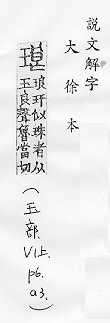 說文解字
大徐本
琅
琅玕似珠者从
玉良聲魯當切
(玉部.
V1上.
p6.
a3.)